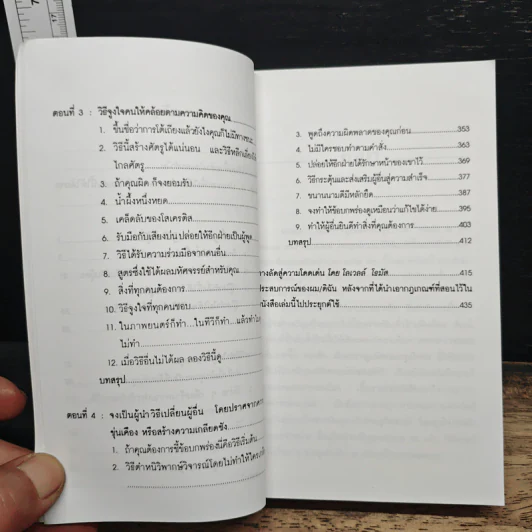 ตอนที่ 3 : วิธีจูงใจคนให้คล้อยตามความคิดของคุณ
1. ขึ้นชื่อว่าการโต้เถียงแล้วยังไงคุณก็ไม่มีทางชนะ
2. วิธีนี้สร้างศัตรูได้แน่นอน และวิธีหลีกเลี่ยง
ไกลศัตรู
3. ถ้าคุณผิด ก็จงยอมรับ
4. น้ำผึ้งหนึ่งหยด
5. เคล็ดลับของโสเครติส
6. รับมือกับเสียงบ่น ปล่อยให้อีกฝ่ายเป็นผู้พูด
7. วิธีได้รับความร่วมมือจากคนอื่น
8. สูตรซึ่งใช้ได้ผลมหัศจรรย์สำหรับคุณ
9. สิ่งที่ทุกคนต้องการ
10. วิธีจูงใจที่ทุกคนชอบ
11. ในภาพยนตร์ก็ทำ...ในทีวีก็ทำ...แล้วทำไม
ไม่ทำ
12. เมื่อวิธีอื่นไม่ได้ผล ลองวิธีนี้ดู
บทสรุป
ตอนที่ 4 : จงเป็นผู้นำ วิธีเปลี่ยนผู้อื่น โดยปราศจาก
ขุ่นเคือง หรือสร้างความเกลียดชัง
1. ถ้าคุณต้องการชี้ข้อบกพร่องนี่คือวิธีเริ่มต้น
2. วิธีตำหนิวิพากษ์วิจารณ์โดยไม่ทำให้ใคร
3. พูดถึงความผิดพลาดของคุณก่อน 353
4. ไม่มีใครชอบทำตามคำสั่ง 363
5. ปล่อยให้อีกฝ่ายได้รักษาหน้าของเขาไว้ 369
6. วิธีกระตุ้นและส่งเสริมผู้อื่นสู่ความสำเร็จ 377
7. ขนานนามดีมีหลักยึด 387
8. จงทำให้ข้อบกพร่องดูเหมือนว่าแก้ไขได้ง่าย 395
9. ทำให้ผู้อื่นยินดีทำสิ่งที่คุณต้องการ 403
บทสรุป 412
ทางลัดสู่ความโดดเด่น โดย โลเวลล์ โธมัส 415
ประสบการณ์ของผม/ดิฉัน หลังจากที่ได้นำเอากฎเกณฑ์ที่สอนไว้ใน
หนังสือเล่มนี้ไปประยุกต์ใช้ 435